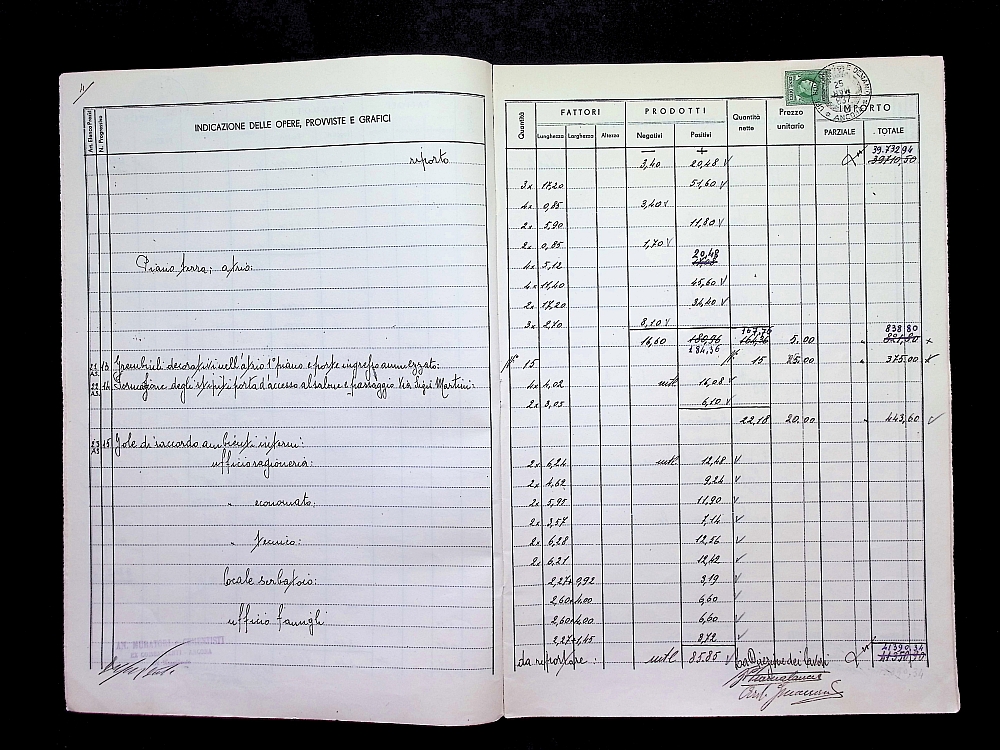 4
Art. Elenco Prezzi
N. Progressivo
INDICAZIONE DELLE OPERE, PROVVISTE E GRAFICI
Quantità
FATTORI
Lunghezza Larghezza Altezza
PRODOTTI
Negativi Positivi
Quantità nette
Prezzo unitario
IMPORTO
PARZIALE TOTALE
ANCONA
— +
39.732 94
riporto 3,40 20,48 V 39710,50
3x 17,20 51,60 V
4x 0,85 3,40 V
2x 5,90 11,80 V
2x 0,85 1,70 V
20,48
Piano terra; atrio: 4x 5,12
4x 11,40 45,60 V
2x 17,20 34,40 V
3x 2,70 8,10 V
167,76 838 80
16,60 180,96 164,36 5.00 " 821,80 x
184,36
21 13 decorativi nell'atrio 1° piano e porte ingresso ammezzato: 15 15 25.00 " 375.00
22 14 Formazione degli stipiti porta d'accesso al salone e passaggio Via Luigi Martini: 4x 4,02 mtl. 16,08 V
2x 3,05 6,10 V
22,18 20.00 " 443,60 V
23 15 Gole di raccordo ambienti interni:
ufficio ragioneria: 2x 6,24 mtl. 12,48 V
2x 4,62 9,24 V
" economato: 2x 5,95 11,90 V
2x 3,57 7,14 V
" tecnico: 2x 6,28 12,56 V
2x 6,21 12,42 V
locale serbatoio: 2,27+0,92 3,19 V
2,60+4,00 6,60 V
ufficio famigli 2,60+4,00 6,60 V
2,27+1,45 3,72 V
41390,34
da riportare: mtl. 85.85 V La Direzione dei lavori